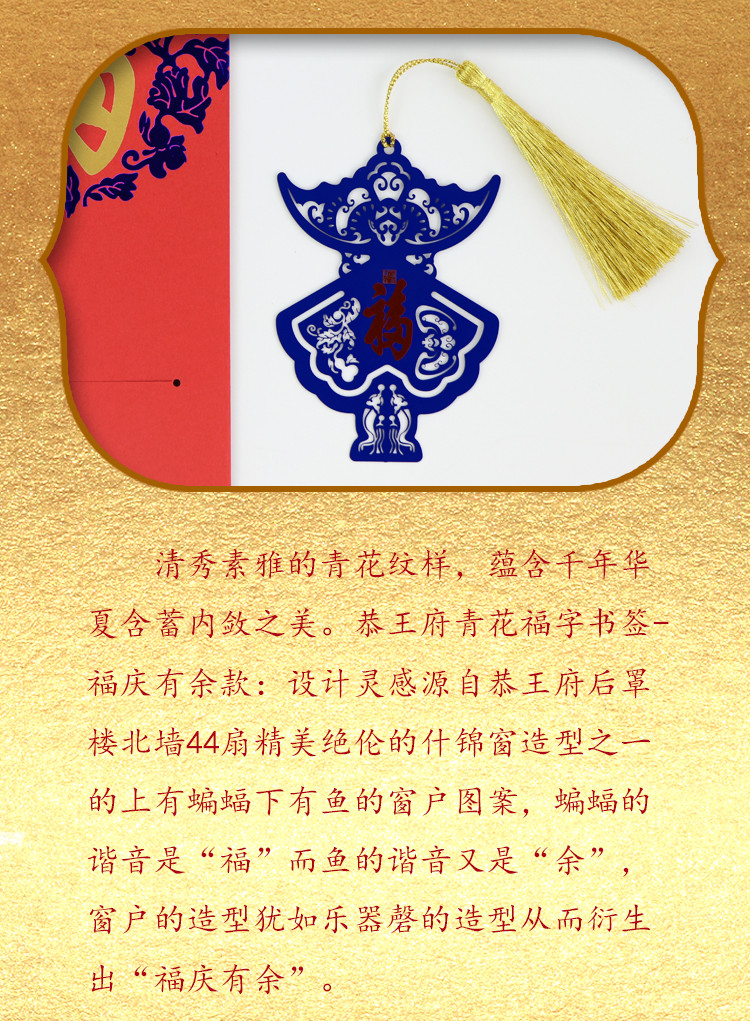 福
清秀素雅的青花纹样，蕴含千年华
夏含蓄内敛之美。恭王府青花福字书签-
福庆有余款：设计灵感源自恭王府后罩
楼北墙44扇精美绝伦的什锦窗造型之一
的上有蝙蝠下有鱼的窗户图案，蝙蝠的
谐音是“福”而鱼的谐音又是“余”，
窗户的造型犹如乐器磬的造型从而衍生
出“福庆有余”。